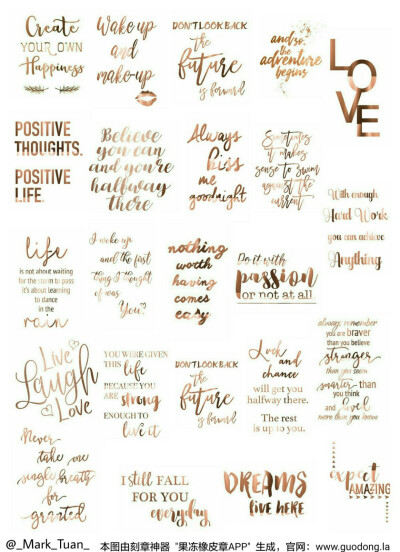 Create
YOUR OWN
Happiness
Wake up
and
make-up
DON'T LOOK BACK
the
future
is forward
and so,
the
adventure
begins
LOVE
POSITIVE
THOUGHTS.
POSITIVE
LIFE.
Believe
you can
and you're
halfway
there
Always
kiss
me
goodnight
Sometimes
it makes
sense to swim
against the
current
With enough
Hard Work
you can achieve
Anything
life
is not about waiting
for the storm to pass
it's about learning
to dance
in the
rain
I woke up
and the first
thing I thought
of was
You!
nothing
worth
having
comes
easy
Do it with
passion
or not at all
Live
Laugh
Love
YOU WERE GIVEN
THIS life
BECAUSE YOU
ARE strong
ENOUGH TO
live it
DON'T LOOK BACK
the
future
is forward
Luck
and
chance
will get you
halfway there.
The rest
is up to you.
always remember
you are braver
than you believe
stronger
than you seem
smarter than
you think
and loved
more than you know
Never
take one
single breath
for
granted
I still FALL
FOR YOU
everyday
DREAMS
live HERE
expect
AMAZING
@_Mark_Tuan_ 本图由刻章神器 "果冻橡皮章APP" 生成，官网：www.guodong.la